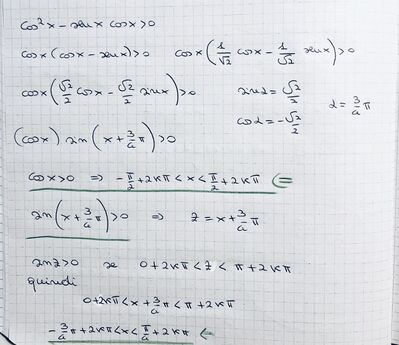 cos²x - senx cosx > 0
cosx (cosx - senx) > 0 cosx (1/√2 cosx - 1/√2 senx) > 0
cosx (√2/2 cosx - √2/2 senx) > 0 sinα = √2/2
cosα = -√2/2 α = 3/4 π
(cosx) sin (x + 3/4 π) > 0
cosx > 0 ⇒ -π/2 + 2kπ < x < π/2 + 2kπ ⇐
sin (x + 3/4 π) > 0 ⇒ z = x + 3/4 π
sinz > 0 se 0 + 2kπ < z < π + 2kπ
quindi
0 + 2kπ < x + 3/4 π < π + 2kπ
-3/4 π + 2kπ < x < π/4 + 2kπ ⇐